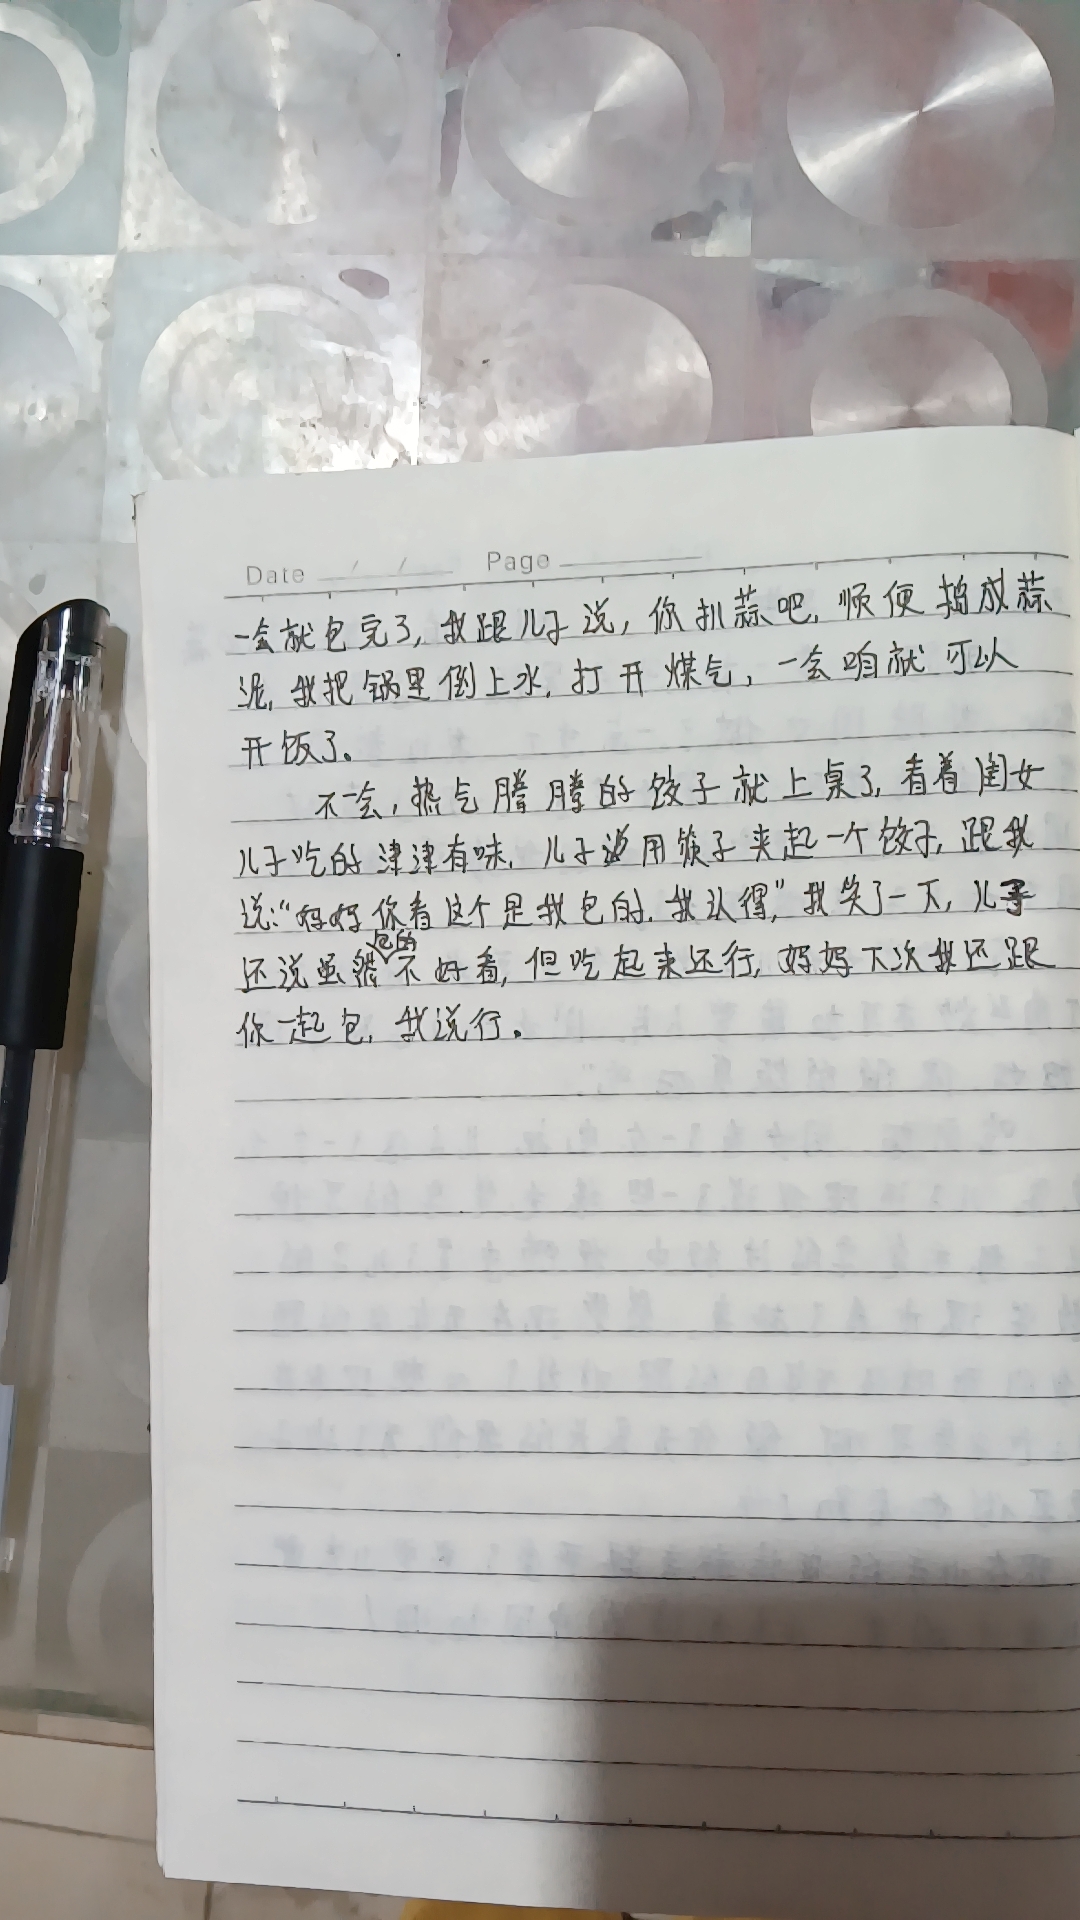 Date / / Page
一会就包完了,我跟儿子说,你扒蒜吧,顺便捣成蒜
泥,我把锅里倒上水,打开煤气,一会咱就可以
开饭了。
不一会,热气腾腾的饺子就上桌了,看着闺女
儿子吃的津津有味,儿子用筷子夹起一个饺子,跟我
说:“妈妈你看这个是我包的,我认得,”我笑了一下,儿子
还说虽然包的不好看,但吃起来还行,妈妈下次我还跟
你一起包,我说行。